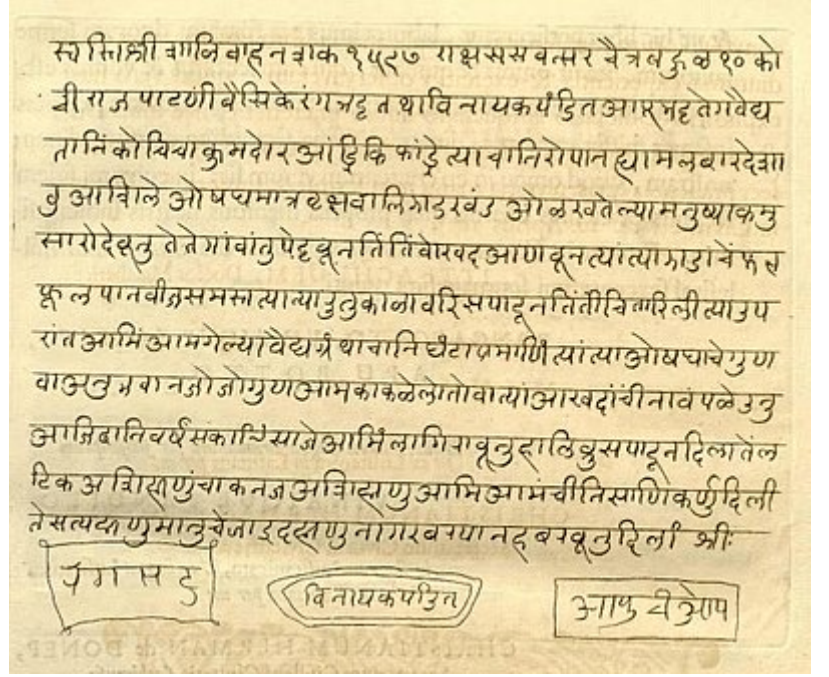 स्वस्ति श्री शालिवाहन शक १५९७ राक्षस सवत्सर चैत्र बहुळ १० को
ची राज पाटणी बैसिके रंगभट्ट तथा विनायक पंडित आपुभट्ट ते ग वैद्य
तानिं कोचिचा कुमदोर आंद्रिकि फांद्रे त्याचा निरोपान ह्या मलबार देशा
वु आशिले ओषधमात्र वृक्ष वालि झाड खंड ओळखतेल्या मनुष्याक मु
सारो देवूनु ते ते गांवांतु पेट्टवून तिं तिं वोखद आणवून त्यां त्या झाडाचें फळ
फूल पान बीज समस्त त्या त्या उतु काळावरि सपादून तिं तीं चितारिली त्या उप
रांत आमिं आमगेल्यां वैद्य ग्रंथाचा निघंटाप्रमाणिं त्यां त्या ओषधाचे गुण
वा अनुभवान जो जो गुण आमका कळेलो तो वा त्यां आखदांचीं नावं पळेउनु
आजि दोनि वर्ष सकाळिं सांजे आमिं लागि रावूनु हालि वुसपादून दिला तें ल
टिक अशि म्हणुंचाक नज अशि म्हणु आमि आमंची निसाणि करुनु दिली
ते सत्य म्हणु मानुचे जाइद म्हणु नागर बरपान ह बरवूनु दिलां श्रीः
रंग भट्ट
विनायक पंडित